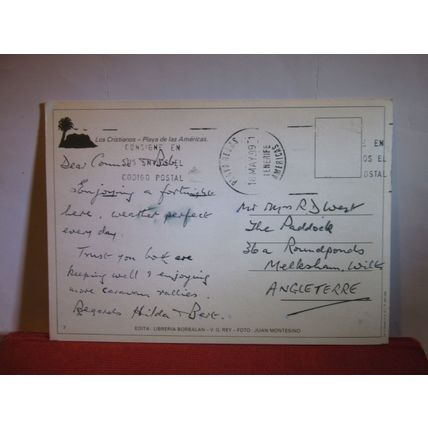 Los Cristianos - Playa de las Américas.
CONSIGNE EN
SUS ENVIOS EL
CODIGO POSTAL
PLAYA DE LAS AMERICAS
18 MAY 99
TENERIFE
Dear Connie & Bob,
Enjoying a fortnight
here, weather perfect
every day.
Trust you both are
keeping well & enjoying
more caravan rallies.
Regards Hilda & Bert.
Mr Mrs R D West
The Paddock
36a Roundponds
Melksham, Wilts
ANGLETERRE
7
EDITA: LIBRERIA BORBALAN - V. G. REY - FOTO: JUAN MONTESINO